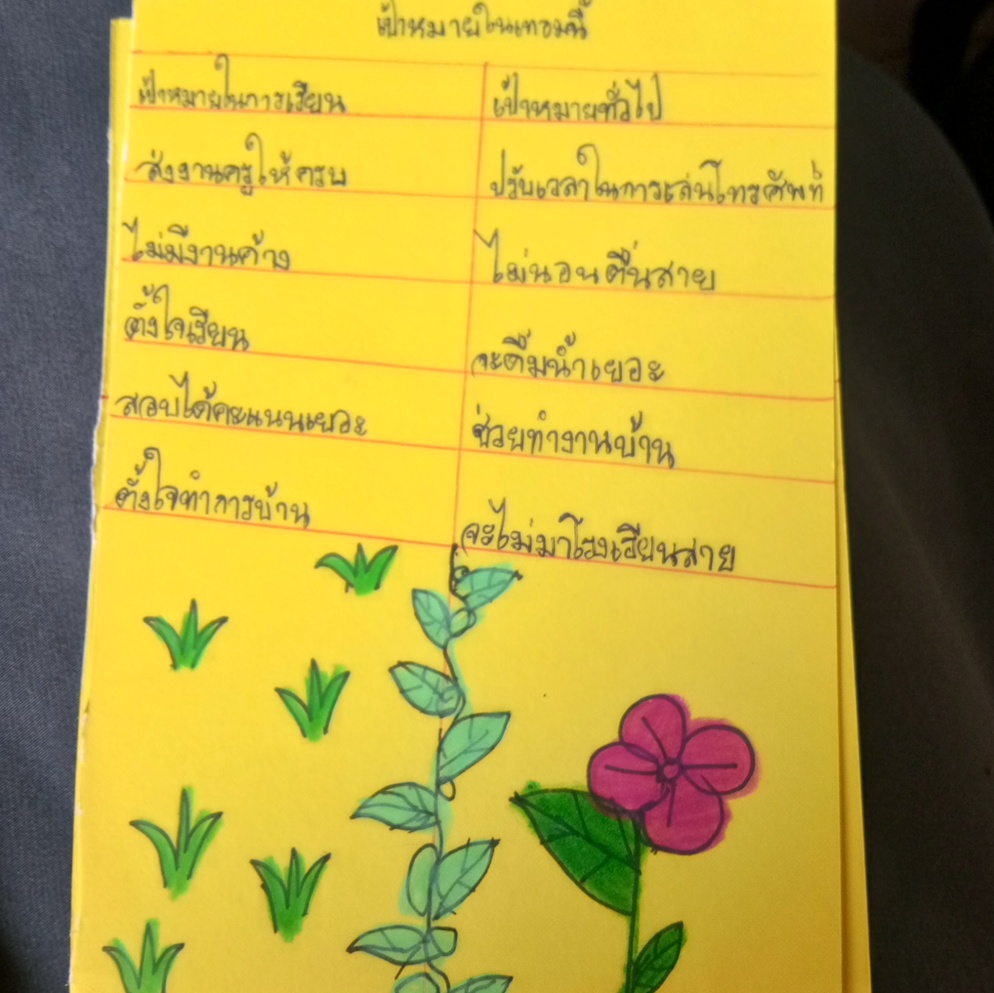 เป้าหมายในเทอมนี้
เป้าหมายในการเรียน
เป้าหมายทั่วไป
ส่งงานครูให้ครบ
ปรับเวลาในการเล่นโทรศัพท์
ไม่มีงานค้าง
ไม่นอนตื่นสาย
ตั้งใจเรียน
จะดื่มน้ำเยอะ
สอบได้คะแนนเยอะ
ช่วยทำงานบ้าน
ตั้งใจทำการบ้าน
จะไม่มาโรงเรียนสาย